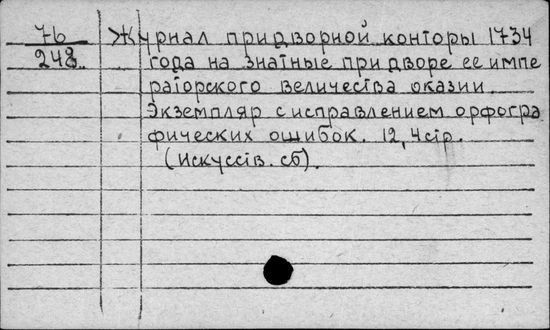 76 Журнал придворной конторы 1734
248 года на знатные при дворе ее импе
раторского величества оказии.
Экземпляр с исправлением орфогра
фических ошибок. 12, 4стр.
(Искусств. сб).